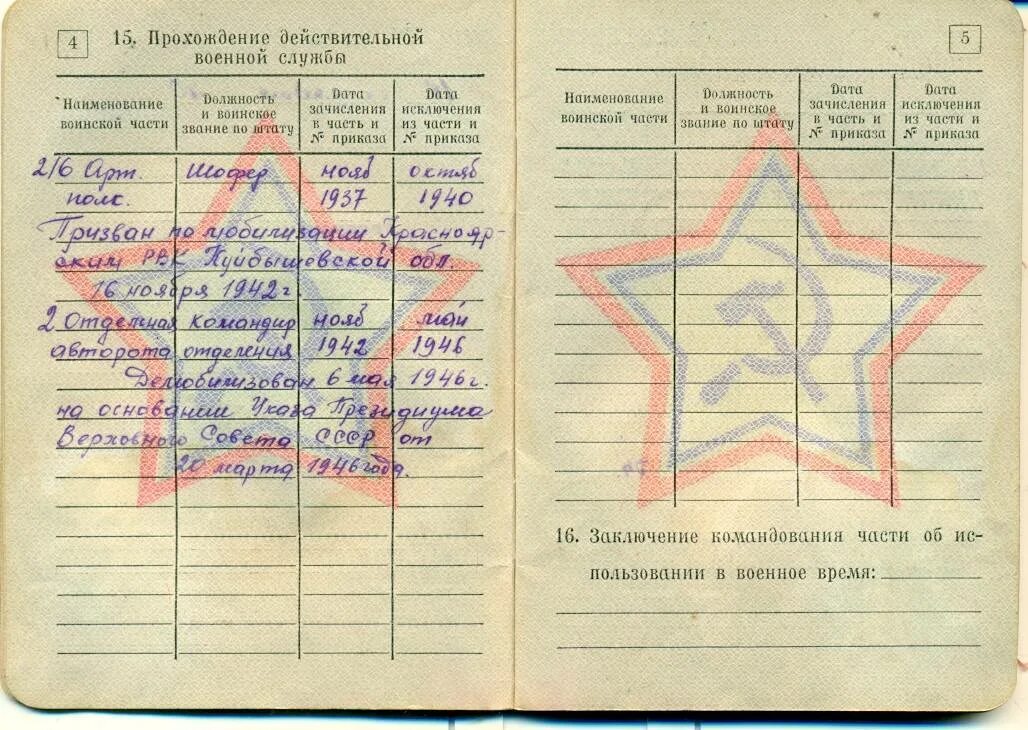 4
15. Прохождение действительной
военной службы
Наименование воинской части
Должность и воинское звание по штату
Дата зачисления в часть и № приказа
Дата исключения из части и № приказа
216 Арт. шофер нояб октяб
полк. 1937 1940
Призван по мобилизации Краснояр-
ским РВК Куйбышевской обл.
16 ноября 1942 г.
2 Отдельная командир нояб май
авторота отделения 1942 1946
Демобилизован 6 мая 1946 г.
на основании Указа Президиума
Верховного Совета СССР от
20 марта 1946 года.
5
Наименование воинской части
Должность и воинское звание по штату
Дата зачисления в часть и № приказа
Дата исключения из части и № приказа
16. Заключение командования части об ис-
пользовании в военное время: